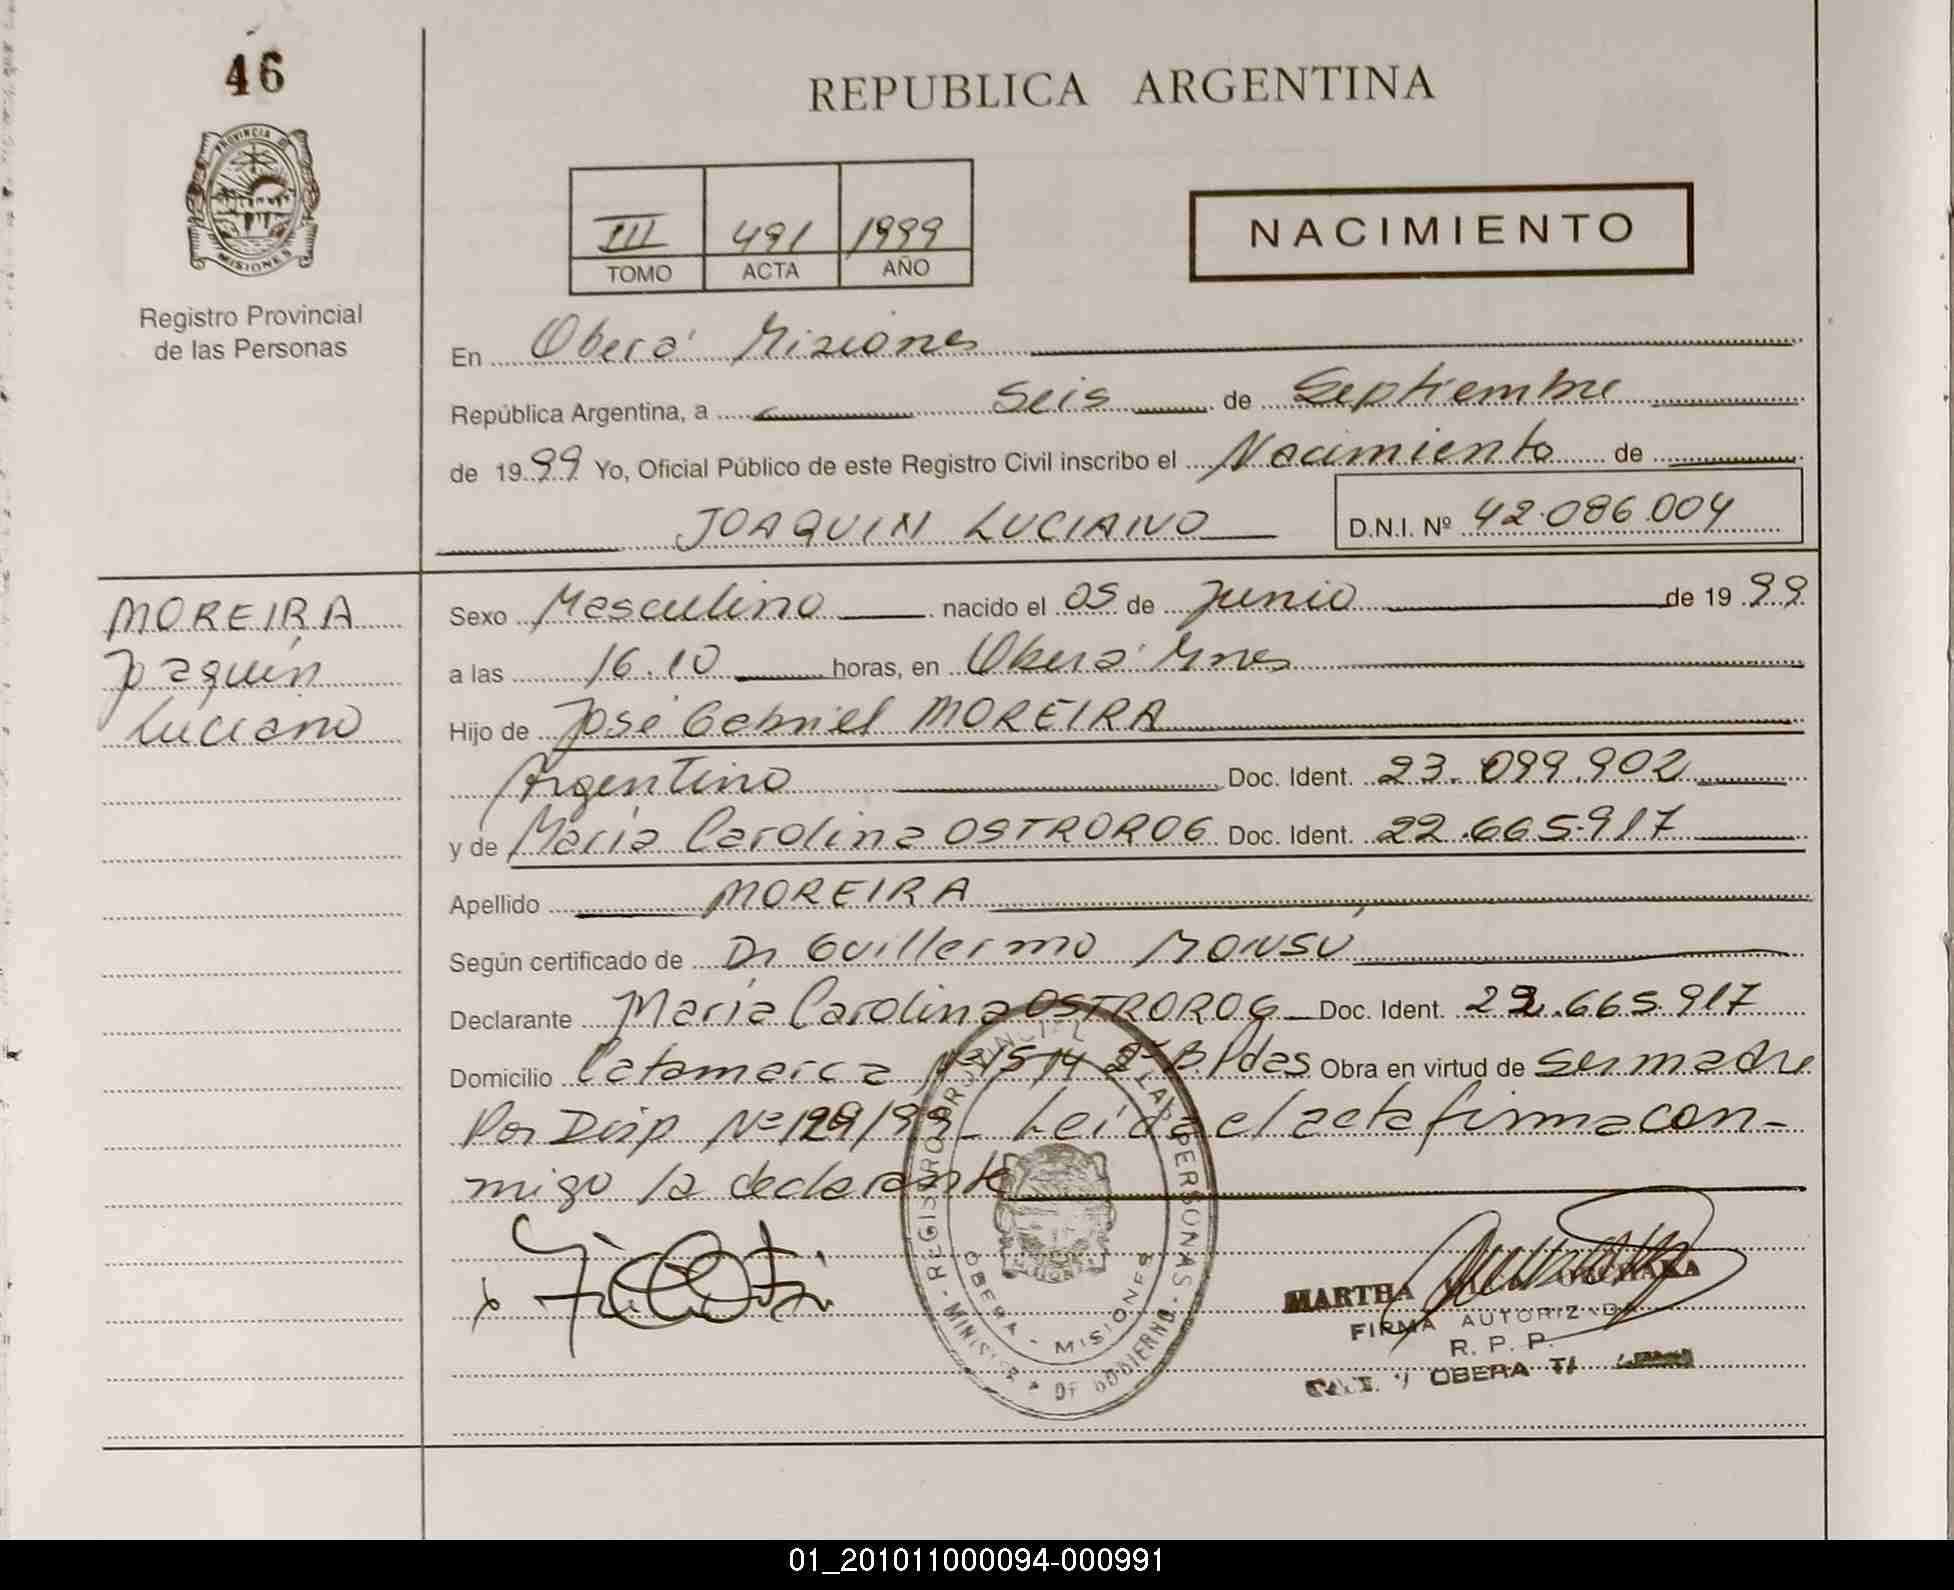 46
REPUBLICA ARGENTINA
PROVINCIA DE
MISIONES
Registro Provincial
de las Personas
III 491 1999
TOMO ACTA AÑO
NACIMIENTO
En Oberá Misiones
República Argentina, a Seis de Septiembre
de 1999 Yo, Oficial Público de este Registro Civil inscribo el Nacimiento de
JOAQUIN LUCIANO D.N.I. Nº 42.086.004
MOREIRA
Joaquín
Luciano
Sexo Masculino nacido el 05 de Junio de 1999
a las 16.10 horas, en Oberá Mnes
Hijo de José Gabriel MOREIRA
Argentino Doc. Ident. 23.099.902
y de María Carolina OSTROROG Doc. Ident. 22.665.917
Apellido MOREIRA
Según certificado de Dr Guillermo MONSU
Declarante María Carolina OSTROROG Doc. Ident. 22.665.917
Domicilio Catamarca Nº 1514 Pdas Obra en virtud de ser madre
Por Disp Nº 129/99 - Leída el acta firma con-
migo la declarante
REGISTRO PROVINCIAL DE LAS PERSONAS - MINISTERIO DE GOBIERNO
OBERA - MISIONES
MARTHA
FIRMA AUTORIZADA
R. P. P.
OBERA
01_201011000094-000991